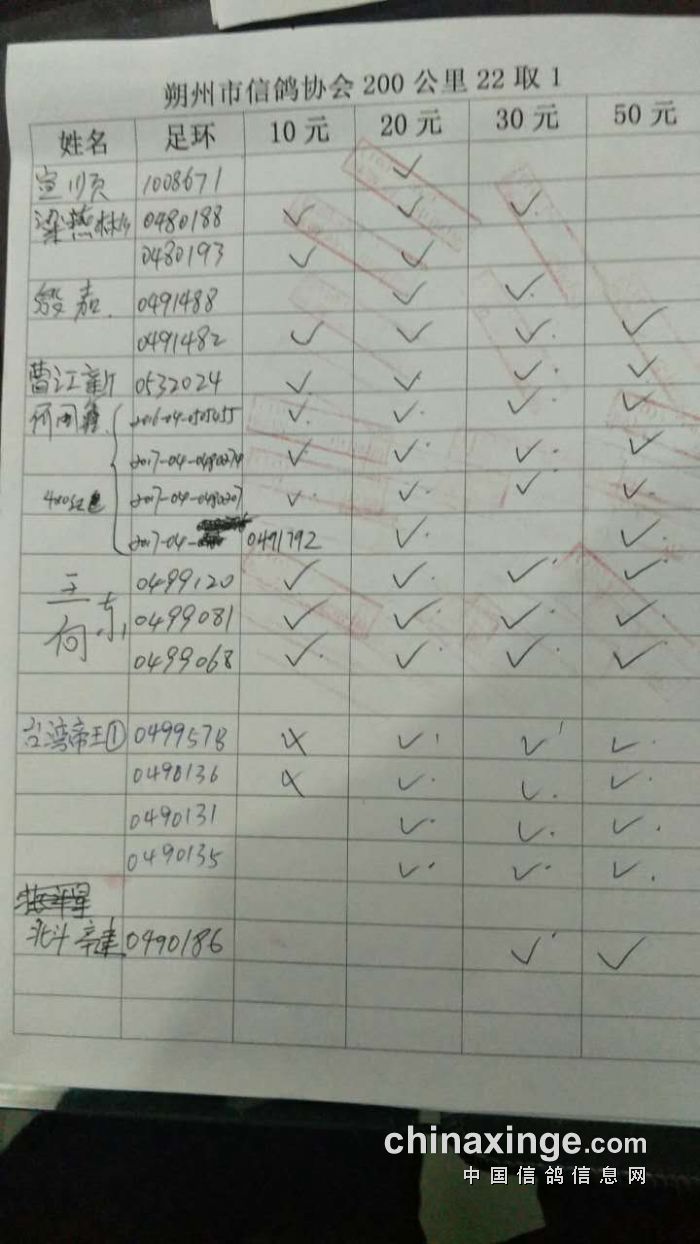 朔州市信鸽协会 200 公里 22 取 1
姓名 足环 10 元 20 元 30 元 50 元
宣顺 1008671 ✓
梁燕林 0480188 ✓ ✓ ✓
0480193 ✓ ✓
嘉 0491488 ✓ ✓
0491482 ✓ ✓ ✓ ✓
曹江新 0532024 ✓ ✓ ✓ ✓
何国 2016-04-0505055 ✓ ✓ ✓ ✓
2017-04-0480274 ✓ ✓ ✓ ✓
2017-04-0480207 ✓ ✓ ✓ ✓
2017-04- 0491792 ✓ ✓
王向东 0499120 ✓ ✓ ✓ ✓
0499081 ✓ ✓ ✓ ✓
0499068 ✓ ✓ ✓ ✓
台湾帝王① 0499578 ✓ ✓ ✓
0490136 ✓ ✓ ✓
0490131 ✓ ✓ ✓
0490135 ✓ ✓ ✓
北斗 0490186 ✓ ✓
chinaxinge.com
中国信鸽信息网